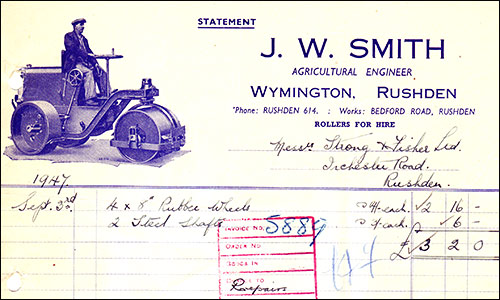 STATEMENT
J. W. SMITH
AGRICULTURAL ENGINEER
WYMINGTON, RUSHDEN
'Phone: RUSHDEN 614. : Works: BEDFORD ROAD, RUSHDEN
ROLLERS FOR HIRE
Messrs Strong & Fisher Ltd.
Irchester Road.
Rushden.
1947.
Sept. 3rd 4 x 8" Rubber Wheels each. 2 16 -
2 Steel Shafts each. 6 -
£ 3 2 0
INVOICE NO. 5889
ORDER NO.
Repairs